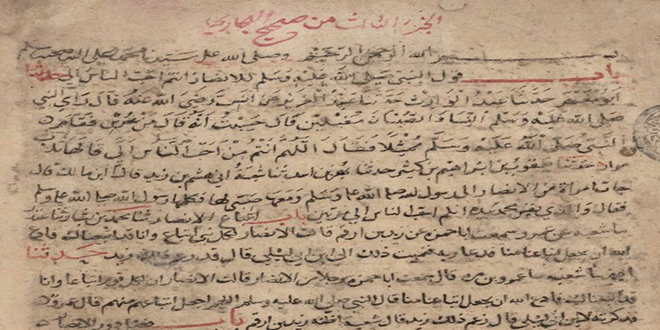 الجزء الثالث من صحيح البخاري
بسم الله الرحمن الرحيم وصلى الله على سيدنا محمد صلى الله عليه وسلم
باب قول النبي صلى الله عليه وسلم للانصار انتم احب الناس الي حدثنا
ابو معمر حدثنا عبد الوارث حدثنا عبد العزيز عن انس رضي الله عنه قال راى النبي
صلى الله عليه وسلم النسا والصبيان مقبلين قال حسبت انه قال من عرس فقام
النبي صلى الله عليه وسلم ممثلا فقال اللهم انتم من احب الناس الي قالها ثلاث
مرار حدثنا يعقوب بن ابراهيم بن كثير حدثنا بهز بن اسد ثنا شعبة اخبرني هشام بن زيد قال انس بن مالك قال
جات امراة من الانصار الى رسول الله صلى الله عليه وسلم ومعها صبي لها فكلمها رسول الله صلى الله عليه وسلم
فقال والذي نفسي بيده انكم احب الناس الي مرتين باب اتباع الانصار ثنا محمد بن بشار ثنا غندر
ثنا شعبة عن عمرو سمعت ابا حمزة عن زيد بن ارقم قالت الانصار لكل نبي اتباع وانا قد اتبعناك فادع
الله ان يجعل اتباعنا منا فدعا به فنميت ذلك الى ابن ابي ليلى قال قد زعم ذلك زيد حدثنا
ادم ثنا شعبة ثنا عمرو بن مرة قال سمعت ابا حمزة رجلا من الانصار قالت الانصار ان لكل قوم اتباعا وانا
قد اتبعناك فادع الله ان يجعل اتباعنا منا قال النبي صلى الله عليه وسلم اللهم اجعل اتباعهم منهم قال عمرو
فذكرته لابن ابي ليلى قال قد زعم ذلك زيد قال شعبة اظنه زيد بن ارقم باب فضل دور الانصار